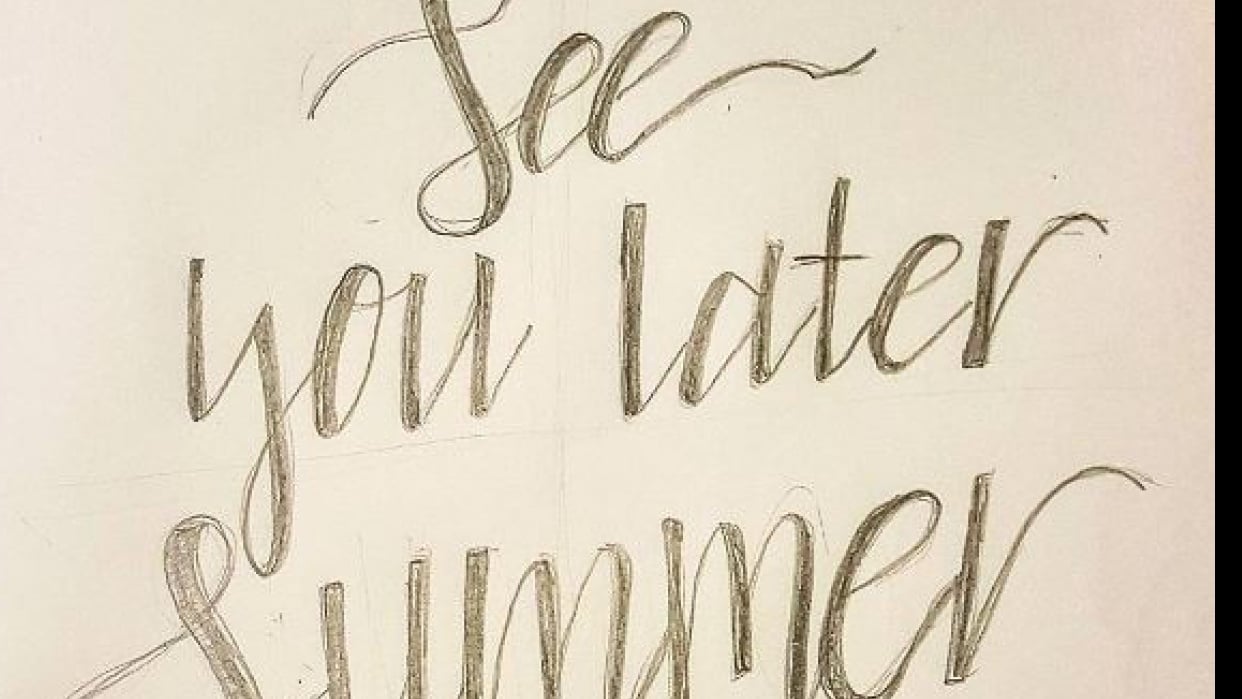 See
you later
Summer